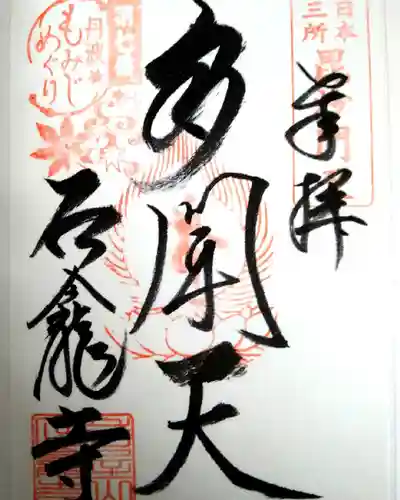 奉拝
日本
三所
毘沙門
多聞天
丹波
もみじ
めぐり
石龕寺